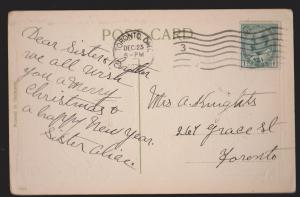 TORONTO, ONT.
DEC 23
5 PM
3
Dear Sister & Brother
we all wish
you a merry
Christmas &
a happy New Year.
Sister Alice.
Mrs A. Knights
267 Grace St
Toronto